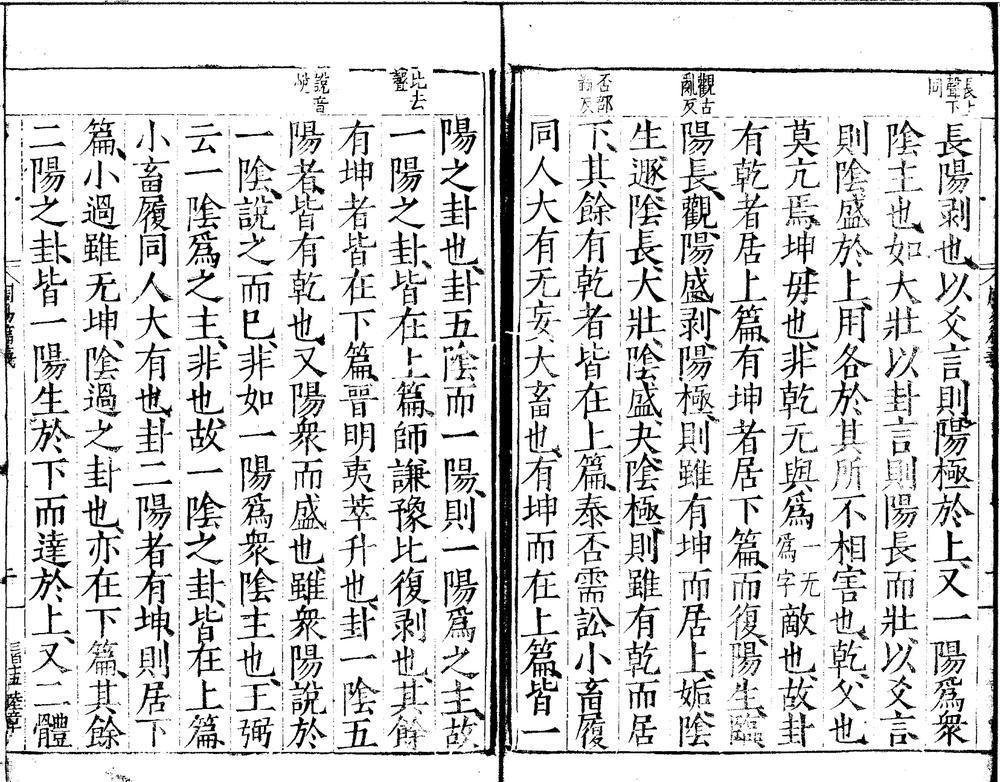 長上
聲下
同
長陽剥也以爻言則陽極於上又一陽爲衆
陰主也如大壯以卦言則陽長而壯以爻言
則陰盛於上用各於其所不相害也乾父也
莫亢焉坤母也非乾无與爲一无爲字敵也故卦
有乾者居上篇有坤者居下篇而復陽生臨
觀古
亂反
陽長觀陽盛剥陽極則雖有坤而居上姤陰
生遯陰長大壯陰盛夬陰極則雖有乾而居
否部
鄙反
下其餘有乾者皆在上篇泰否需訟小畜履
同人大有无妄大畜也有坤而在上篇皆一
陽之卦也卦五陰而一陽則一陽爲之主故
比去
聲
一陽之卦皆在上篇師謙豫比復剥也其餘
有坤者皆在下篇晉明夷萃升也卦一陰五
説音
悦
陽者皆有乾也又陽衆而盛也雖衆陽說於
一陰說之而已非如一陽爲衆陰主也王弼
云一陰爲之主非也故一陰之卦皆在上篇
小畜履同人大有也卦二陽者有坤則居下
篇小過雖无坤陰過之卦也亦在下篇其餘
二陽之卦皆一陽生於下而達於上又二體